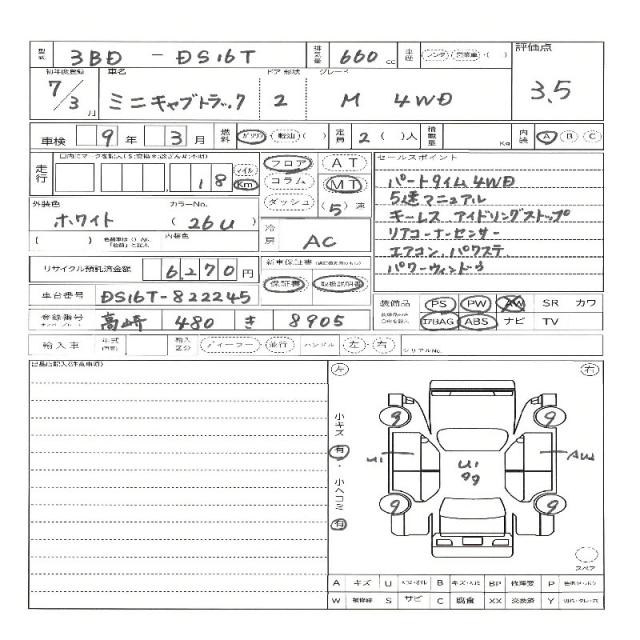 型式 3BD - DS16T 排気量 660 cc 車歴 評価点
初年度登録 車名 ドア 形状 グレード
7/3月 ミニキャブトラック 2 M 4WD 3.5
車検 9年 3月 燃料 ガソリン・軽油・( ) 定員 2 ( )人 積載量 Kg 内装 A B C
走行 18 マイル Km フロア AT セールスポイント
コラム MT パートタイム4WD
外装色 カラーNo. ダッシュ (5)速 5速マニュアル
ホワイト (26U) 冷房 AC キーレス アイドリングストップ
( ) 内装色 リアコーナーセンサー
エアコン、パワステ
リサイクル預託済金額 6,270円 新車保証書 パワーウィンドウ
保証書 取扱説明書
車台番号 DS16T-822245 装備品 PS PW AW SR カワ
登録番号 高崎 480 き 8905 エアBAG ABS ナビ TV
輸入車 年式 輸入区分 ディーラー・並行 ハンドル 左・右 シリアルNo.
左 右
小キズ 有・小ヘコミ 有
9 9
U1 U1 99 AU2
9 9
スペア
A キズ U B BP 修理要 P
W S サビ C 腐食 XX 交換済 Y